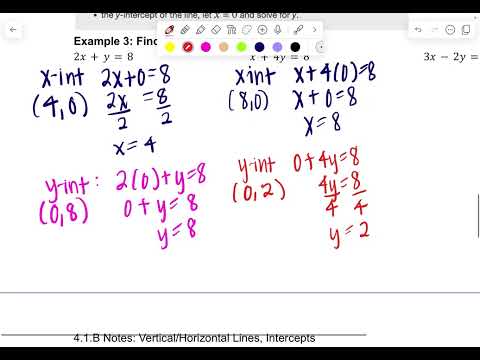 the y-intercept of the line, let x = 0 and solve for y.
Example 3: Find
2x + y = 8
x + 4y = 8
3x − 2y =
x-int 2x+0=8
(4,0) 2x/2 = 8/2
x = 4
y-int: 2(0)+y=8
(0,8) 0+y=8
y=8
x int x+4(0)=8
(8,0) x+0=8
x=8
y-int 0+4y=8
(0,2) 4y/4 = 8/4
y=2
4.1.B Notes: Vertical/Horizontal Lines, Intercepts